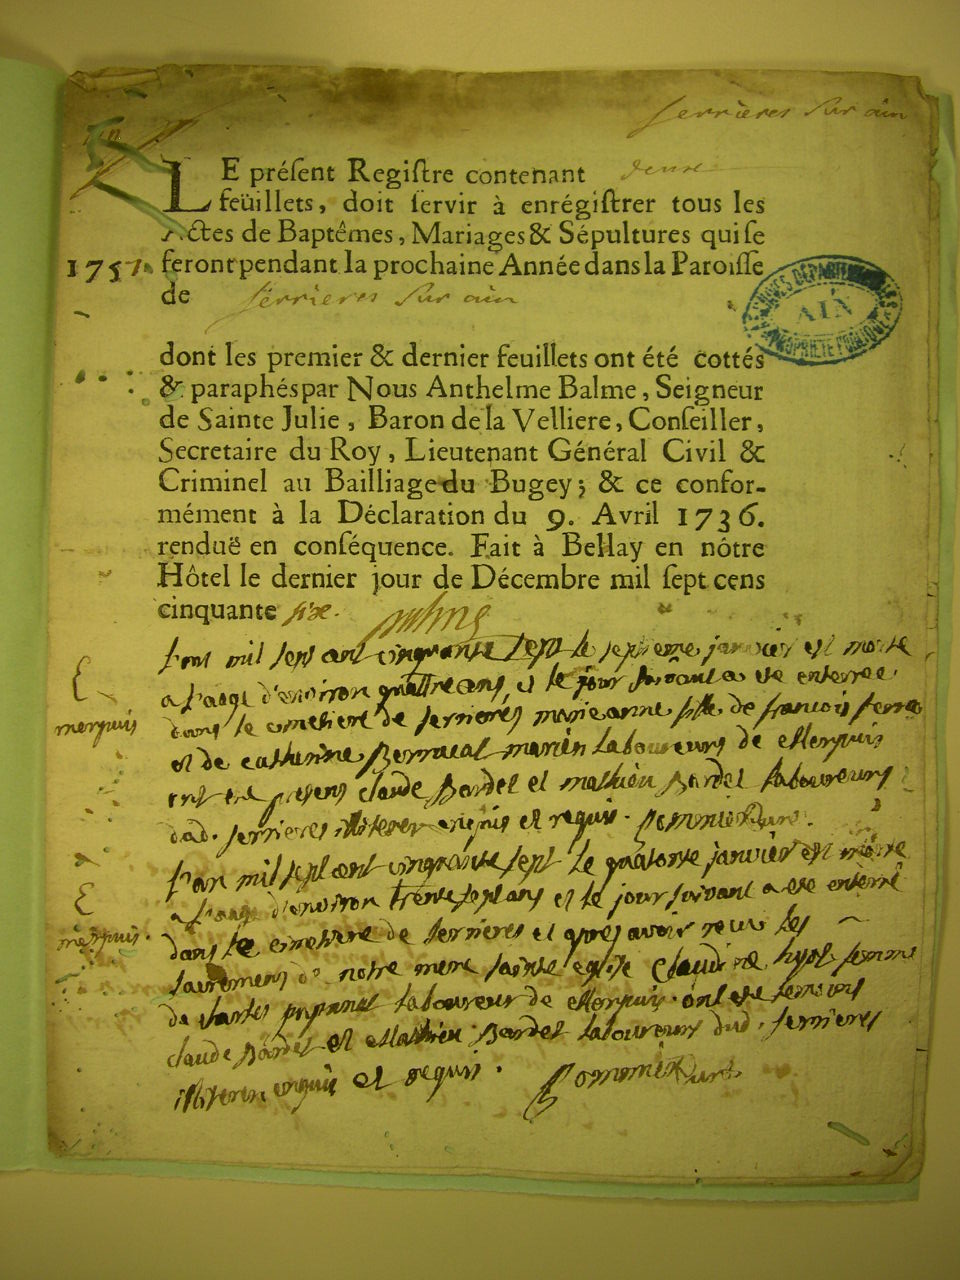 serrieres sur ain
LE préſent Regiſtre contenant douze
feüillets, doit ſervir à enrégiſtrer tous les
Actes de Baptêmes, Mariages & Sépultures qui ſe
1757. feront pendant la prochaine Année dans la Paroiſſe
de serrieres sur ain
ARCHIVES DEPARTEMENTALES
AIN
PROPRIÉTÉ PUBLIQUE
dont les premier & dernier feuillets ont été cottés
& paraphés par Nous Anthelme Balme, Seigneur
de Sainte Julie, Baron de la Velliere, Conſeiller,
Secretaire du Roy, Lieutenant Général Civil &
Criminel au Bailliage du Bugey; & ce confor-
mément à la Déclaration du 9. Avril 1736.
renduë en conſéquence. Fait à Bellay en nôtre
Hôtel le dernier jour de Décembre mil ſept cens
cinquante six.
l'an mil sept cent cinquante sept le septieme janvier est morte
a l'aage d'environ quattre ans, et le jour suivant a ete enterree
merpuis
dans le cimetiere de serrieres marie anne fille de francois
et de catherine laboureurs de merpuis
ont ete presens claude Bardet et mathieu Bardet laboureurs
dud. serrieres illiteres enquis et requis.
l'an mil sept cent cinquante sept le quatorse janvier est morte
a l'aage d'environ trente sept ans et le jour suivant a ete enterré
merpuis.
dans le cimetiere de serrieres et apres avoir receu les
sacremens de notre mere sainte eglise claudine femme
de charles laboureur de merpuis. ont ete temoins
claude Bardet et mathieu Bardet laboureurs dud. serrieres
illiteres enquis et requis.